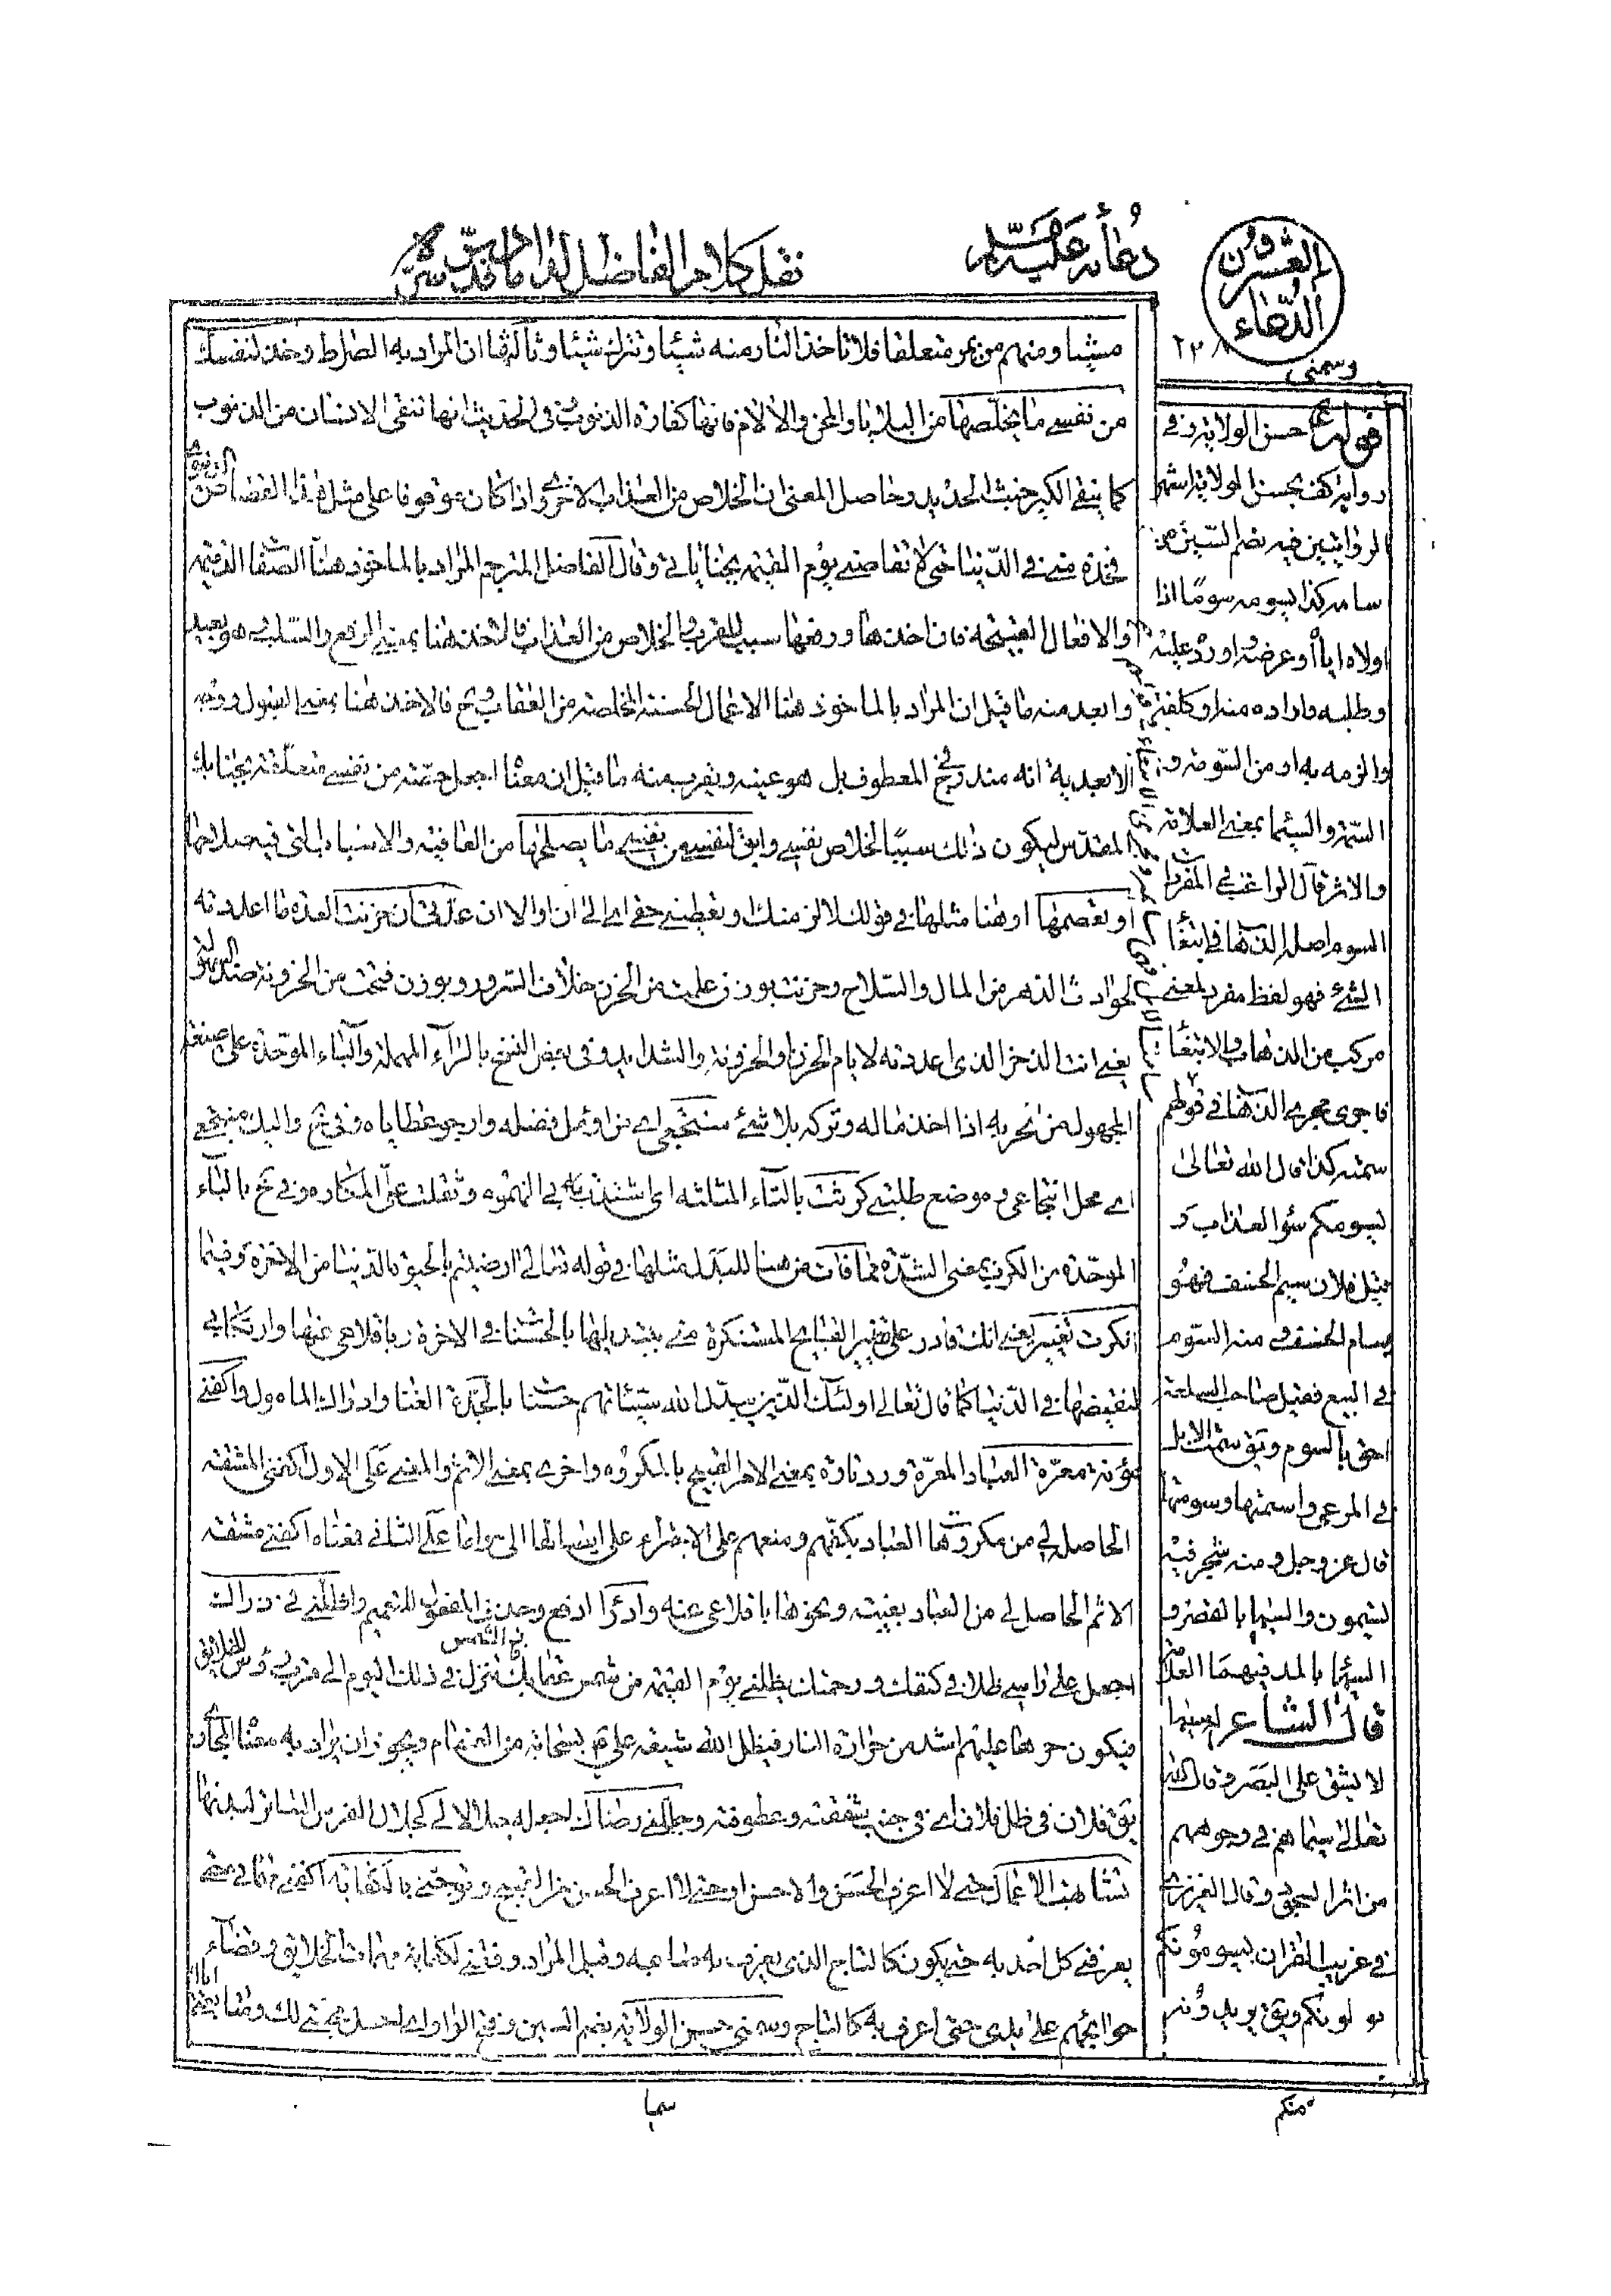 نقل كلام الفاضل الداماد قدس سره
دعائه عليه السلام
الدعاء العشرون
٢٣٨
مشيا ومنهم من يمر متعلقا فلا تأخذ النار منه شيئا وتترك شيئا وثالثها ان المراد به الصراط وخذ لنفسك
من نفسى ما يخلصها من البلايا والمحن والآلام فانها كفارة الذنوب وفى الحديث انها تنقى الانسان من الذنوب
كما ينقى الكير خبث الحديد وحاصل المعنى ان الخلاص من العذاب الاخرى واذا كان موقوفا على مثل هذا القضاء من الذنوب
فخذه منى فى الدنيا حتى لا تقاصنى يوم القيمة بجناياتى وقال الفاضل المترجم المراد بالماخوذ هنا الصفات الذميمة
والافعال القبيحة فان اخذها ورفعها سبب للقرب والخلاص من العذاب فالاخذ هنا بمعنى الرفع والسلب وهو بعيد
وابعد منه ما قيل ان المراد بالماخوذ هنا الاعمال الحسنة المخلصة من العقاب وح فالاخذ هنا بمعنى القبول ووجه
الابعدية انه مندرج فى المعطوف بل هو عينه ويقرب منه ما قيل ان معناه اجعل حصة من نفسى متعلقة بجنابك
المقدس ليكون ذلك سببا لخلاص نفسى وابق لنفسى من نفسى ما يصلحها من العافية والاسباب التى فيه صلاحها
او تعصمها او هنا مثلها فى قولك لالزمنك او تعطينى حقى اى الى ان او الا ان عدتى ان حزنت العدة ما اعددته
لحوادث الدهر من المال والسلاح وحزنت بوزن علمت من الحزن خلاف السرور وبوزن فتحت من الحزونة ضد السهولة
يعنى انت الذخر الذى اعددته لايام الحزن والحزونة والشدايد وفى بعض النسخ بالراء المهملة والباء الموحدة على صيغة
المجهول من حربه اذا اخذ ماله وتركه بلا شئ منتجعى اى من اومل فضله وارجو عطاياه وفى نخ واليك منتجعى
اى محل انتجاعى وموضع طلبتى كرثت بالثاء المثلثة اى اشتدت بى الهموم وثقلت على المكاره وفى نخ بالباء
الموحدة من الكرب بمعنى الشدة مما فات من هنا للبدل مثلها فى قوله تعالى ارضيتم بالحيوة الدنيا من الاخرة وفيما
انكرت تغيير يعنى انك قادر على تغيير القبايح المستنكرة منى بتبديلها بالحسنات فى الاخرة وباقلاعى عنها وارتكابى
لنقيضها فى الدنيا كما قال تعالى اولئك الذين يبدل الله سيئاتهم حسنات بالجدة الغنا وادراك المامول واكفنى
مؤنة معرة العباد المعرة وردت تارة بمعنى الامر القبيح بالمكروه واخرى بمعنى الاثم والمعنى على الاول اكفنى المشقة
الحاصل لى من مكروهات العباد بكفهم ومنعهم على الاجتراء على ايصالها الى واما على الثانى فمعناه اكفنى مشقة
الاثم الحاصل لى من العباد بغيبته ونحوها باقلاعى عنه وادرأ ادفع وحذف المفعول للتعميم واظلنى فى ذراك
اجعل على راسى ظلا فى كنفك ورحمتك يظلنى يوم القيمة من شمس عقابك تنزل فى ذلك اليوم الى قرب رؤس الخلايق
فيكون حرها عليهم اشد من حرارة النار فيظل الله شيعة على ع بسحابة من الغمام ويجوز ان يراد به معناه المجازى
يق فلان فى ظل فلان اى فى جنب شفقته وعطوفته وجللنى رضاك اجعله جلالا لى كجلال الفرس الساتر لبدنها
تشابهت الاعمال حتى لا اعرف الحسن والاحسن او حتى لا اعرف الحسن من القبيح وتوجنى بالكفاية اكفنى مهماتى حتى
يعرفنى كل احد به حتى يكون كالتاج الذى يعرف به صاحبه وقيل المراد وفقنى لكفاية مهمات الخلايق وقضاء
حوائجهم على يدى حتى اعرف به كالتاج وسمنى حسن الولاية بضم السين وفتح الواو اى احسن محبتى لك ومتابعتى اياك
وسمنى
قوله ع حسن الولاية وفى
رواية كف بحسن الولاية اشهر
الروايتين فيه بضم السين من
سامه كذا يسومه سوما اذا
اولاه اياه او عرضه او رد عليه
وطلبه واراده منه او كلفه
والزمه به او من السومة و
السمة والسيما بمعنى العلامة
والاثر قال الراغب فى المفردات
السوم اصله الذهاب فى ابتغاء
الشئ فهو لفظ مفرد لمعنى
مركب من الذهاب والابتغاء
فاجرى مجرى الذهاب فى قولهم
سمته كذا قال الله تعالى
يسومكم سوء العذاب و
قيل فلان سيم الخسف فهو
يسام الخسف ومنه السوم
فى البيع فقيل صاحب السلعة
احق بالسوم ويق سمت الابل
فى المرعى واسمتها وسومتها
قال عز وجل ومنه شجر فيه
تسيمون والسيما بالقصر و
السيماء بالمد فيهما العلامة
قال الشاعر له سيما
لا يشق على البصر وقال الله
تعالى سيماهم فى وجوههم
من اثر السجود وقال العزيزى
فى غريب القران يسومونكم
يولونكم ويق يريدونه
منكم
سما